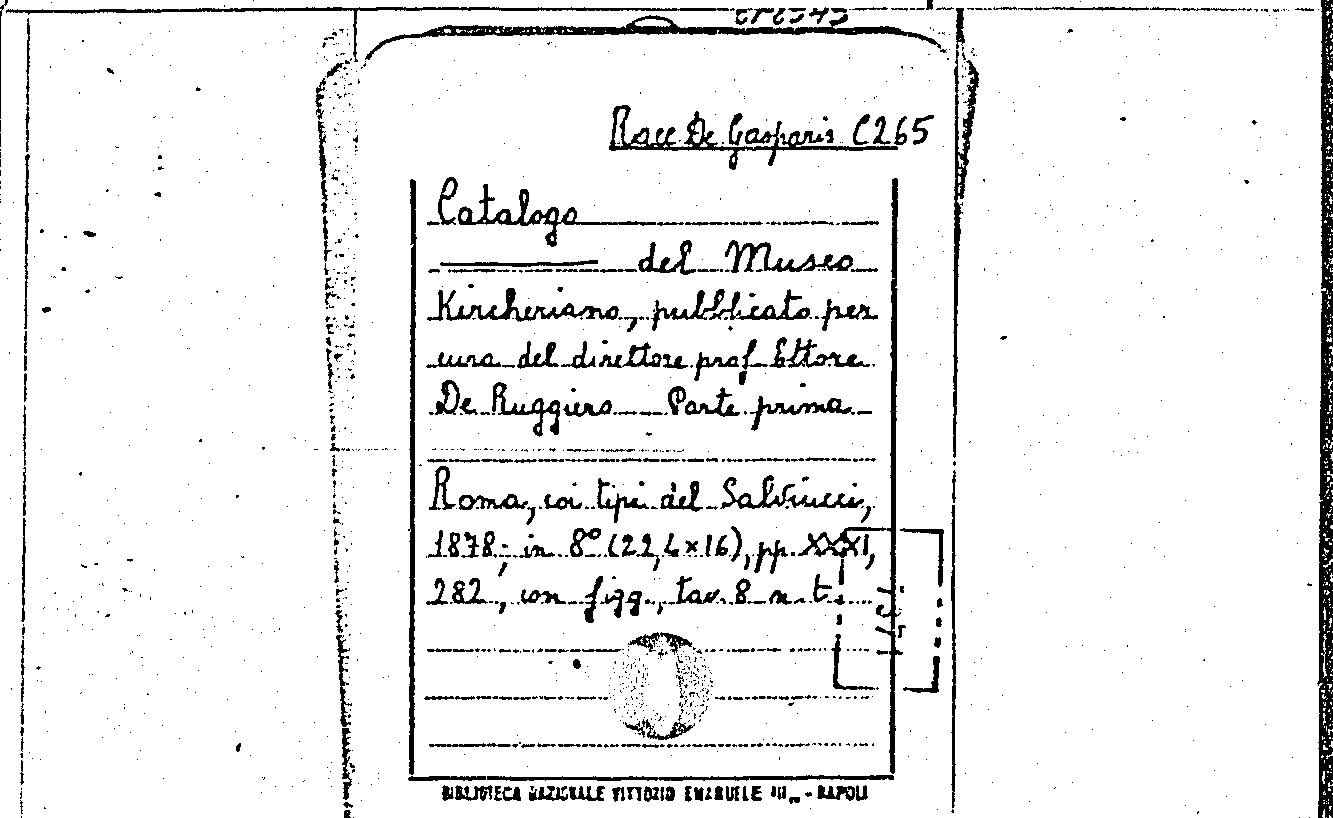 Racc De Gasparis C265
Catalogo
del Museo
Kircheriano, pubblicato per
cura del direttore prof Ettore
De Ruggiero Parte prima
Roma, coi tipi del Salviucci,
1878; in 8° (22,4×16), pp. XXXI,
282, con figg., tav. 8 n. t.
BIBLIOTECA NAZIONALE VITTORIO EMANUELE III - NAPOLI